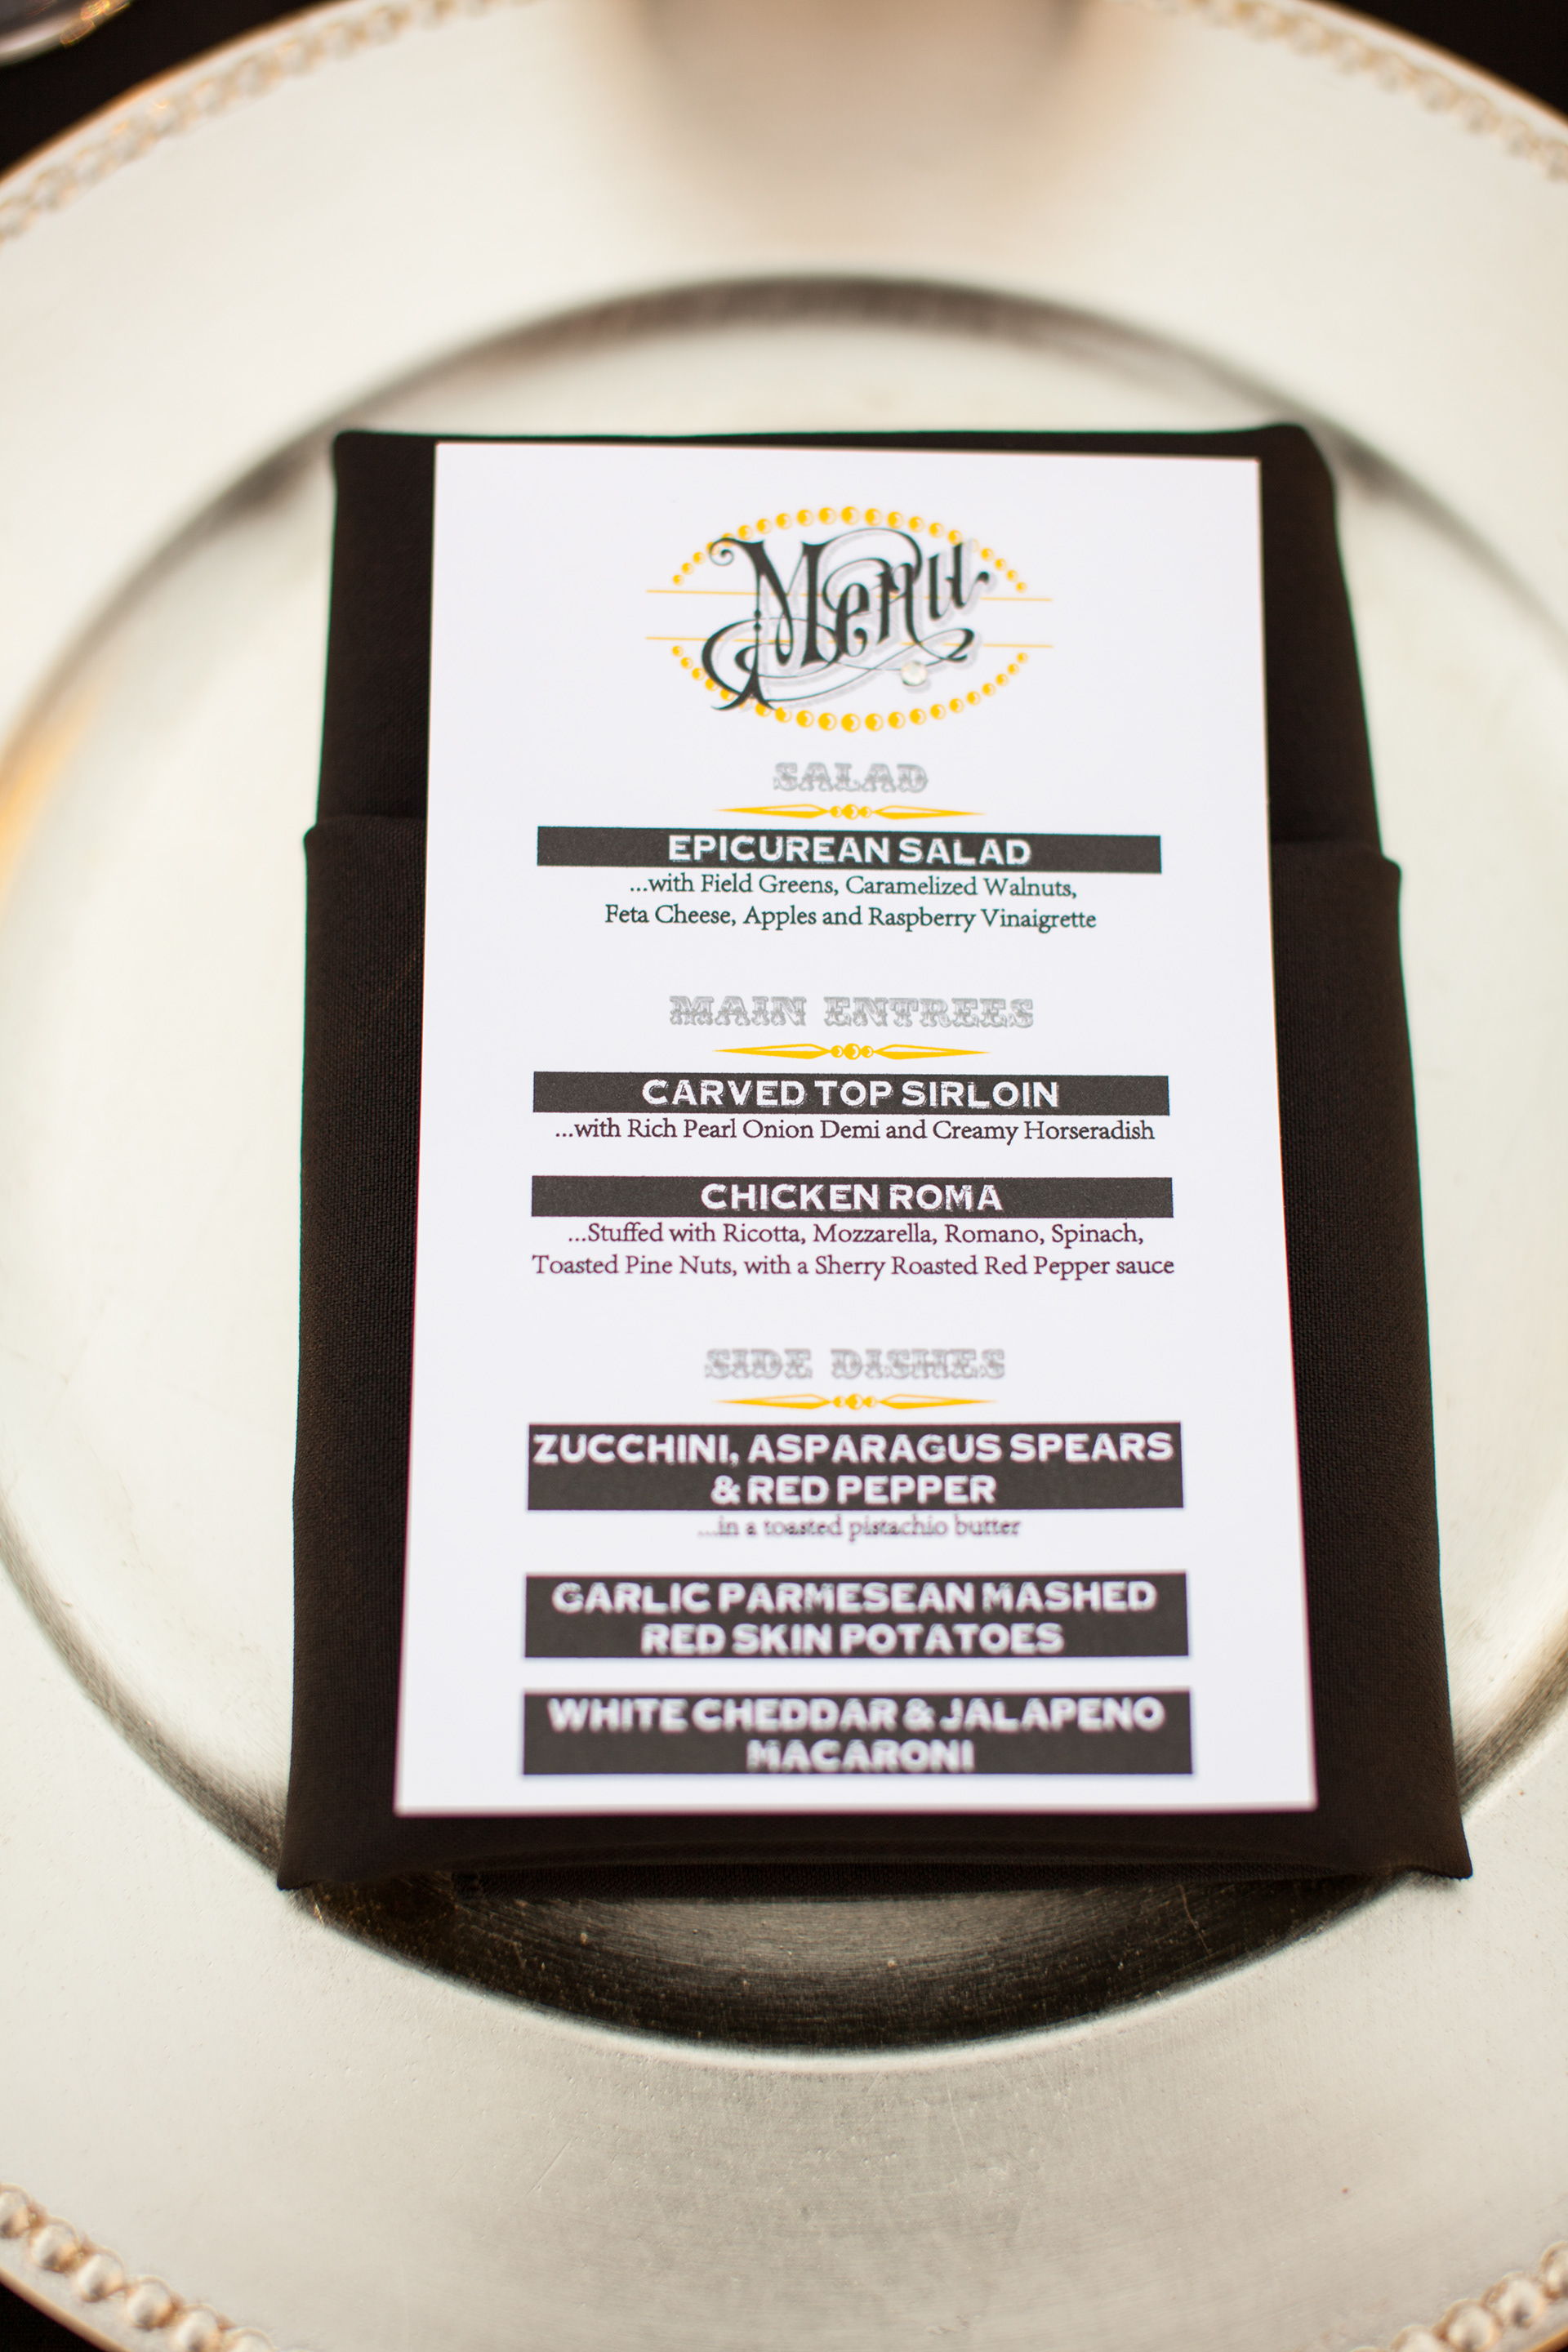 Menu
SALAD
EPICUREAN SALAD
...with Field Greens, Caramelized Walnuts,
Feta Cheese, Apples and Raspberry Vinaigrette
MAIN ENTREES
CARVED TOP SIRLOIN
...with Rich Pearl Onion Demi and Creamy Horseradish
CHICKEN ROMA
...Stuffed with Ricotta, Mozzarella, Romano, Spinach,
Toasted Pine Nuts, with a Sherry Roasted Red Pepper sauce
SIDE DISHES
ZUCCHINI, ASPARAGUS SPEARS
& RED PEPPER
...in a toasted pistachio butter
GARLIC PARMESEAN MASHED
RED SKIN POTATOES
WHITE CHEDDAR & JALAPENO
MACARONI